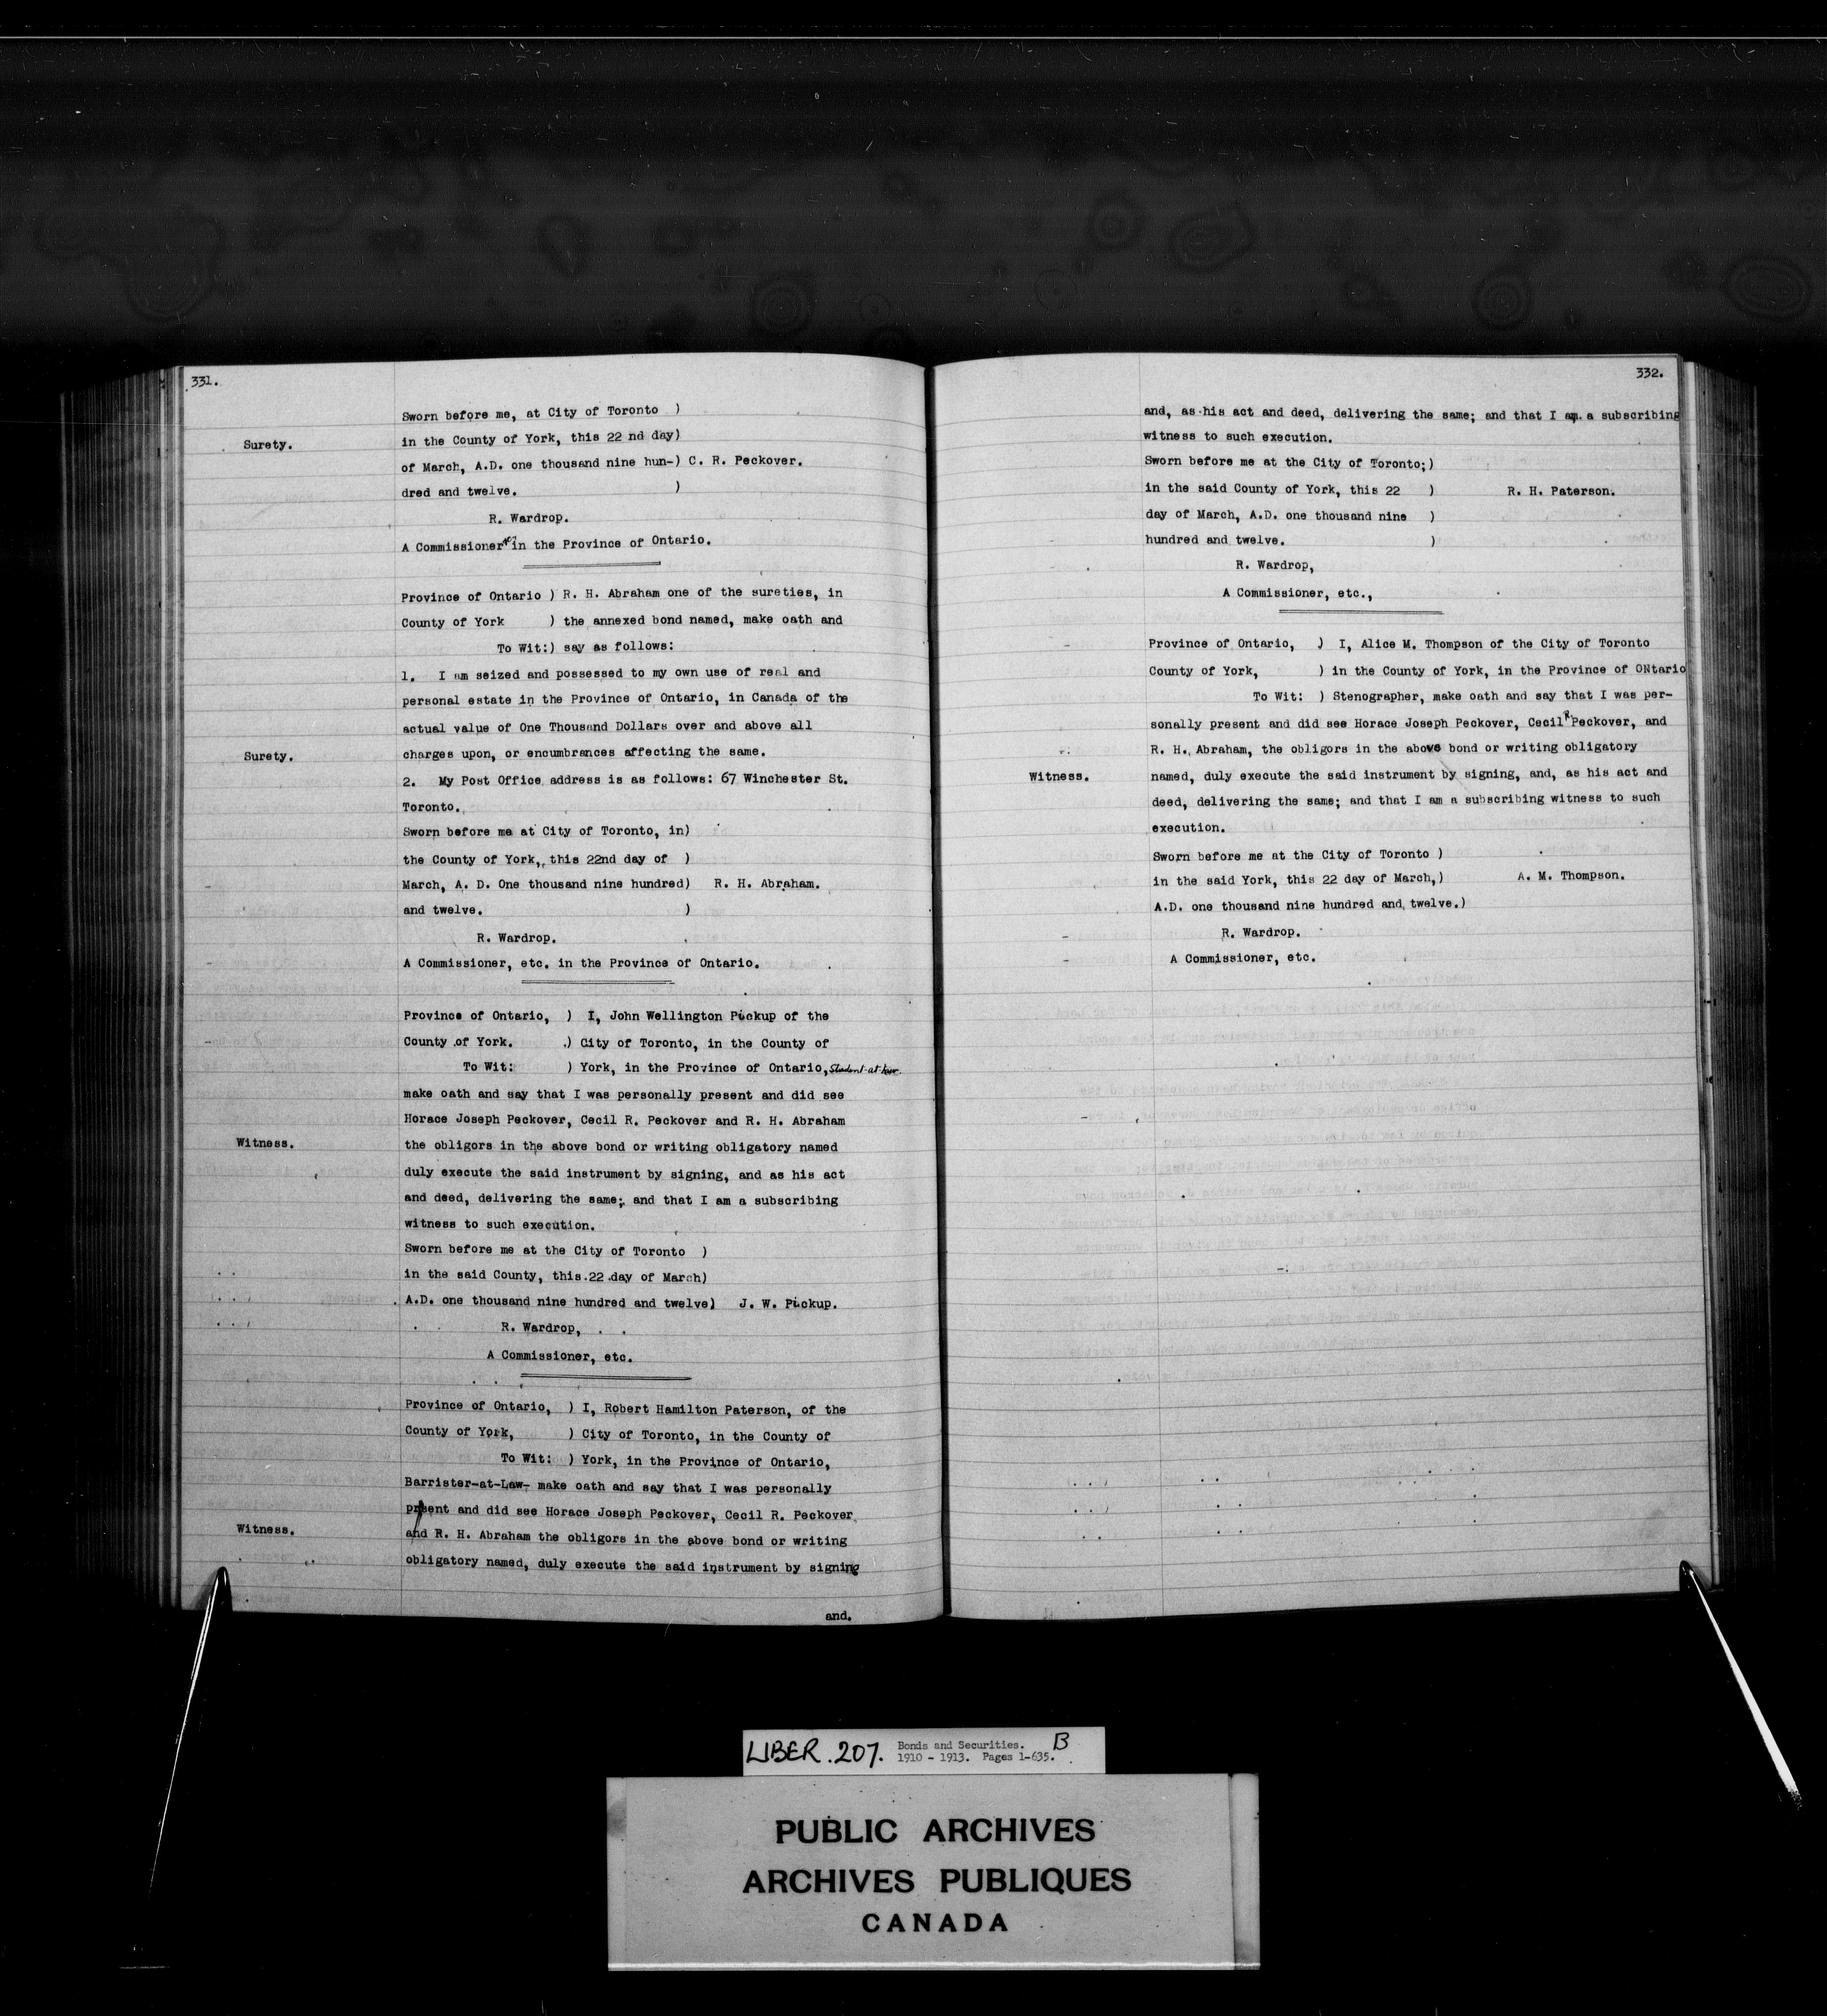 331.
Sworn before me, at City of Toronto )
Surety.
in the County of York, this 22 nd day)
of March, A.D. one thousand nine hun-) C. R. Peckover.
dred and twelve. )
R. Wardrop.
A Commissioner etc in the Province of Ontario.
Province of Ontario ) R. H. Abraham one of the sureties, in
County of York ) the annexed bond named, make oath and
To Wit:) say as follows:
1. I am seized and possessed to my own use of real and
personal estate in the Province of Ontario, in Canada of the
actual value of One Thousand Dollars over and above all
Surety.
charges upon, or encumbrances affecting the same.
2. My Post Office address is as follows: 67 Winchester St.
Toronto.
Sworn before me at City of Toronto, in)
the County of York, this 22nd day of )
March, A. D. One thousand nine hundred) R. H. Abraham.
and twelve. )
R. Wardrop.
A Commissioner, etc. in the Province of Ontario.
Province of Ontario, ) I, John Wellington Pickup of the
County of York. ) City of Toronto, in the County of
To Wit: ) York, in the Province of Ontario, Student-at-law.
make oath and say that I was personally present and did see
Horace Joseph Peckover, Cecil R. Peckover and R. H. Abraham
Witness.
the obligors in the above bond or writing obligatory named
duly execute the said instrument by signing, and as his act
and deed, delivering the same; and that I am a subscribing
witness to such execution.
Sworn before me at the City of Toronto )
in the said County, this 22 day of March)
A.D. one thousand nine hundred and twelve) J. W. Pickup.
R. Wardrop,
A Commissioner, etc.
Province of Ontario, ) I, Robert Hamilton Paterson, of the
County of York, ) City of Toronto, in the County of
To Wit: ) York, in the Province of Ontario,
Barrister-at-Law- make oath and say that I was personally
present and did see Horace Joseph Peckover, Cecil R. Peckover
Witness.
and R. H. Abraham the obligors in the above bond or writing
obligatory named, duly execute the said instrument by signing
and.
332.
and, as his act and deed, delivering the same; and that I am a subscribing
witness to such execution.
Sworn before me at the City of Toronto;)
in the said County of York, this 22 ) R. H. Paterson.
day of March, A.D. one thousand nine )
hundred and twelve. )
R. Wardrop,
A Commissioner, etc.,
Province of Ontario, ) I, Alice M. Thompson of the City of Toronto
County of York, ) in the County of York, in the Province of ONtario
To Wit: ) Stenographer, make oath and say that I was per-
sonally present and did see Horace Joseph Peckover, Cecil R. Peckover, and
R. H. Abraham, the obligors in the above bond or writing obligatory
Witness.
named, duly execute the said instrument by signing, and, as his act and
deed, delivering the same; and that I am a subscribing witness to such
execution.
Sworn before me at the City of Toronto )
in the said York, this 22 day of March,) A. M. Thompson.
A.D. one thousand nine hundred and twelve.)
R. Wardrop.
A Commissioner, etc.
LIBER. 207. Bonds and Securities. B
1910 - 1913. Pages 1-635.
PUBLIC ARCHIVES
ARCHIVES PUBLIQUES
CANADA